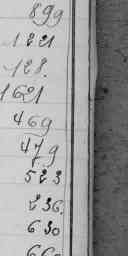 899
1221
128.
1621
469
479
523
236.
630
660